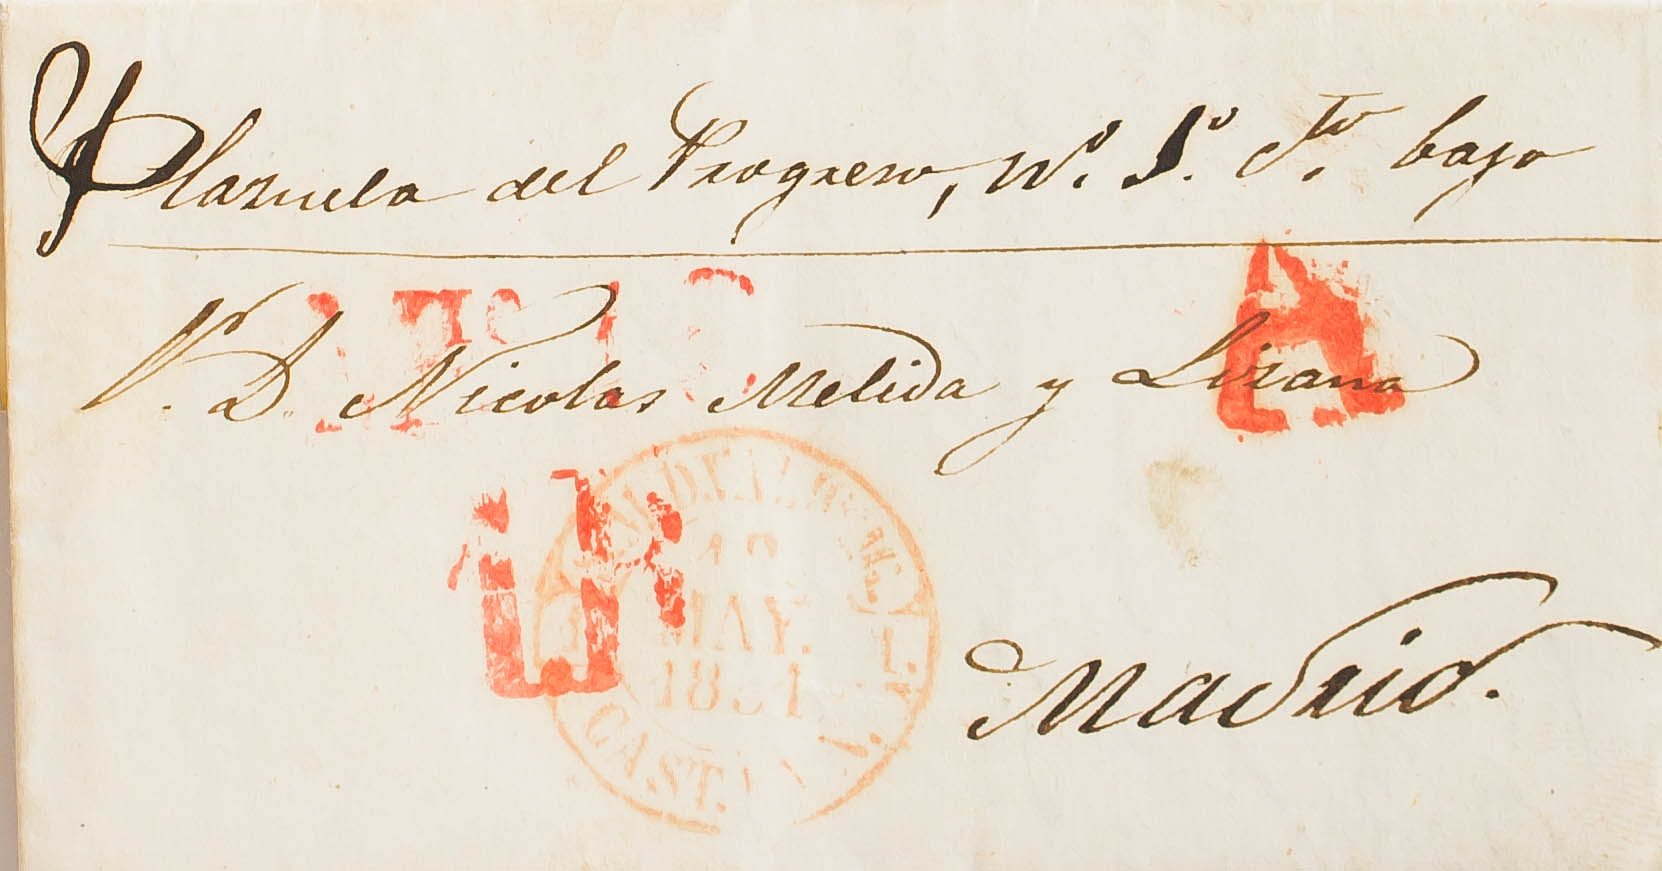 Plazuela del Progreso, Nº. 5º. Cto. bajo
S. D. Nicolas Melida y Lizana
A
MAY.
1851
CAST.
Madrid.